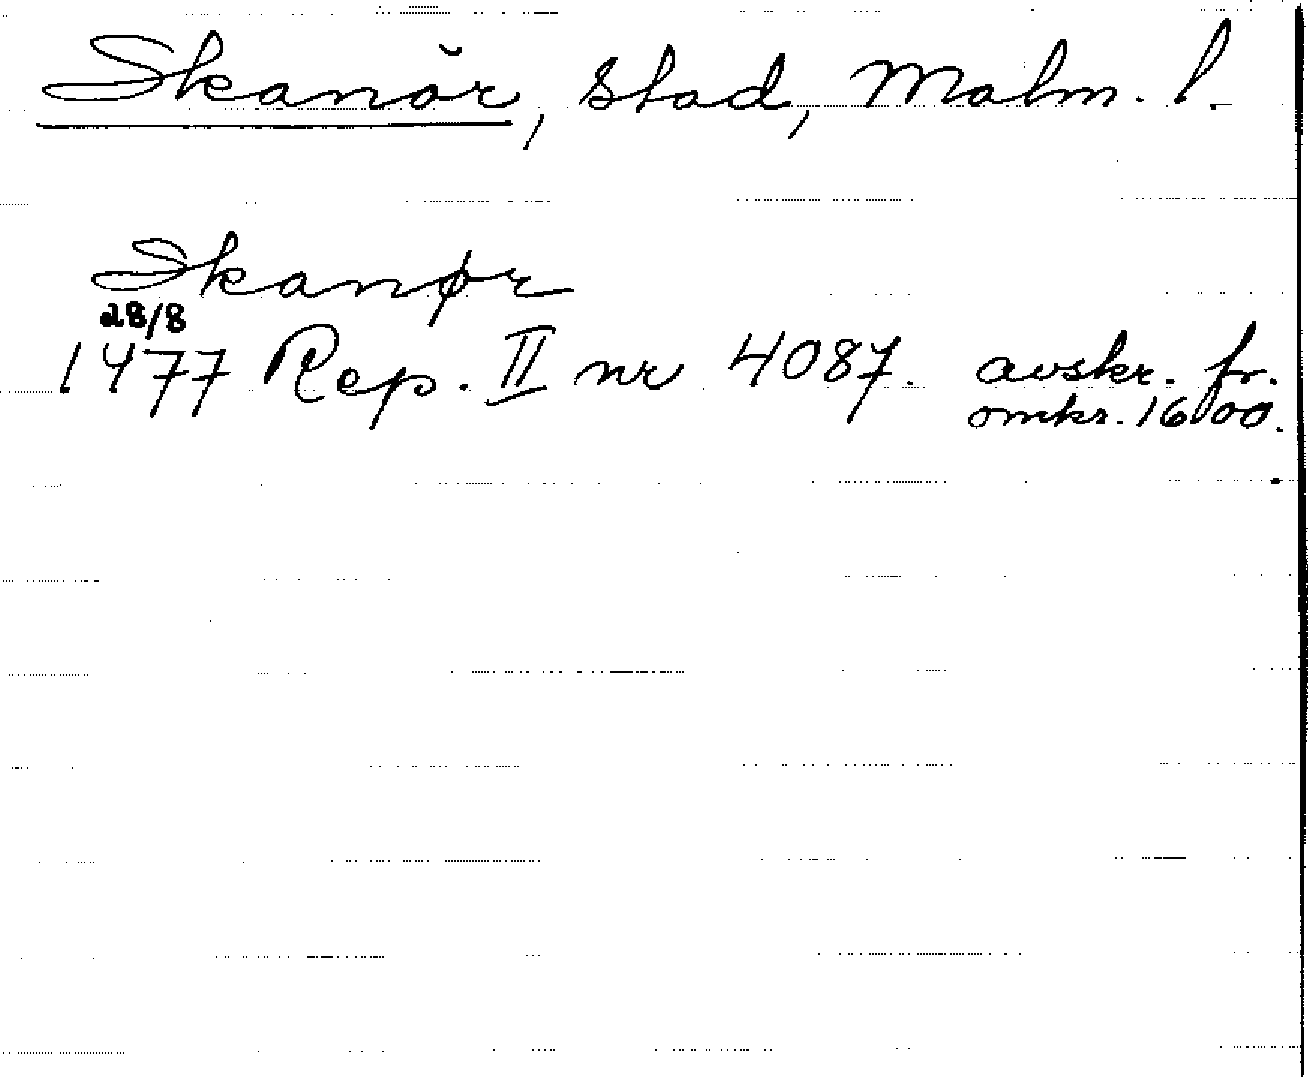 Skanör, stad, Malm. l.
Skanør
28/8
1477 Rep. II nr 4087. avskr. fr.
omkr. 1600.